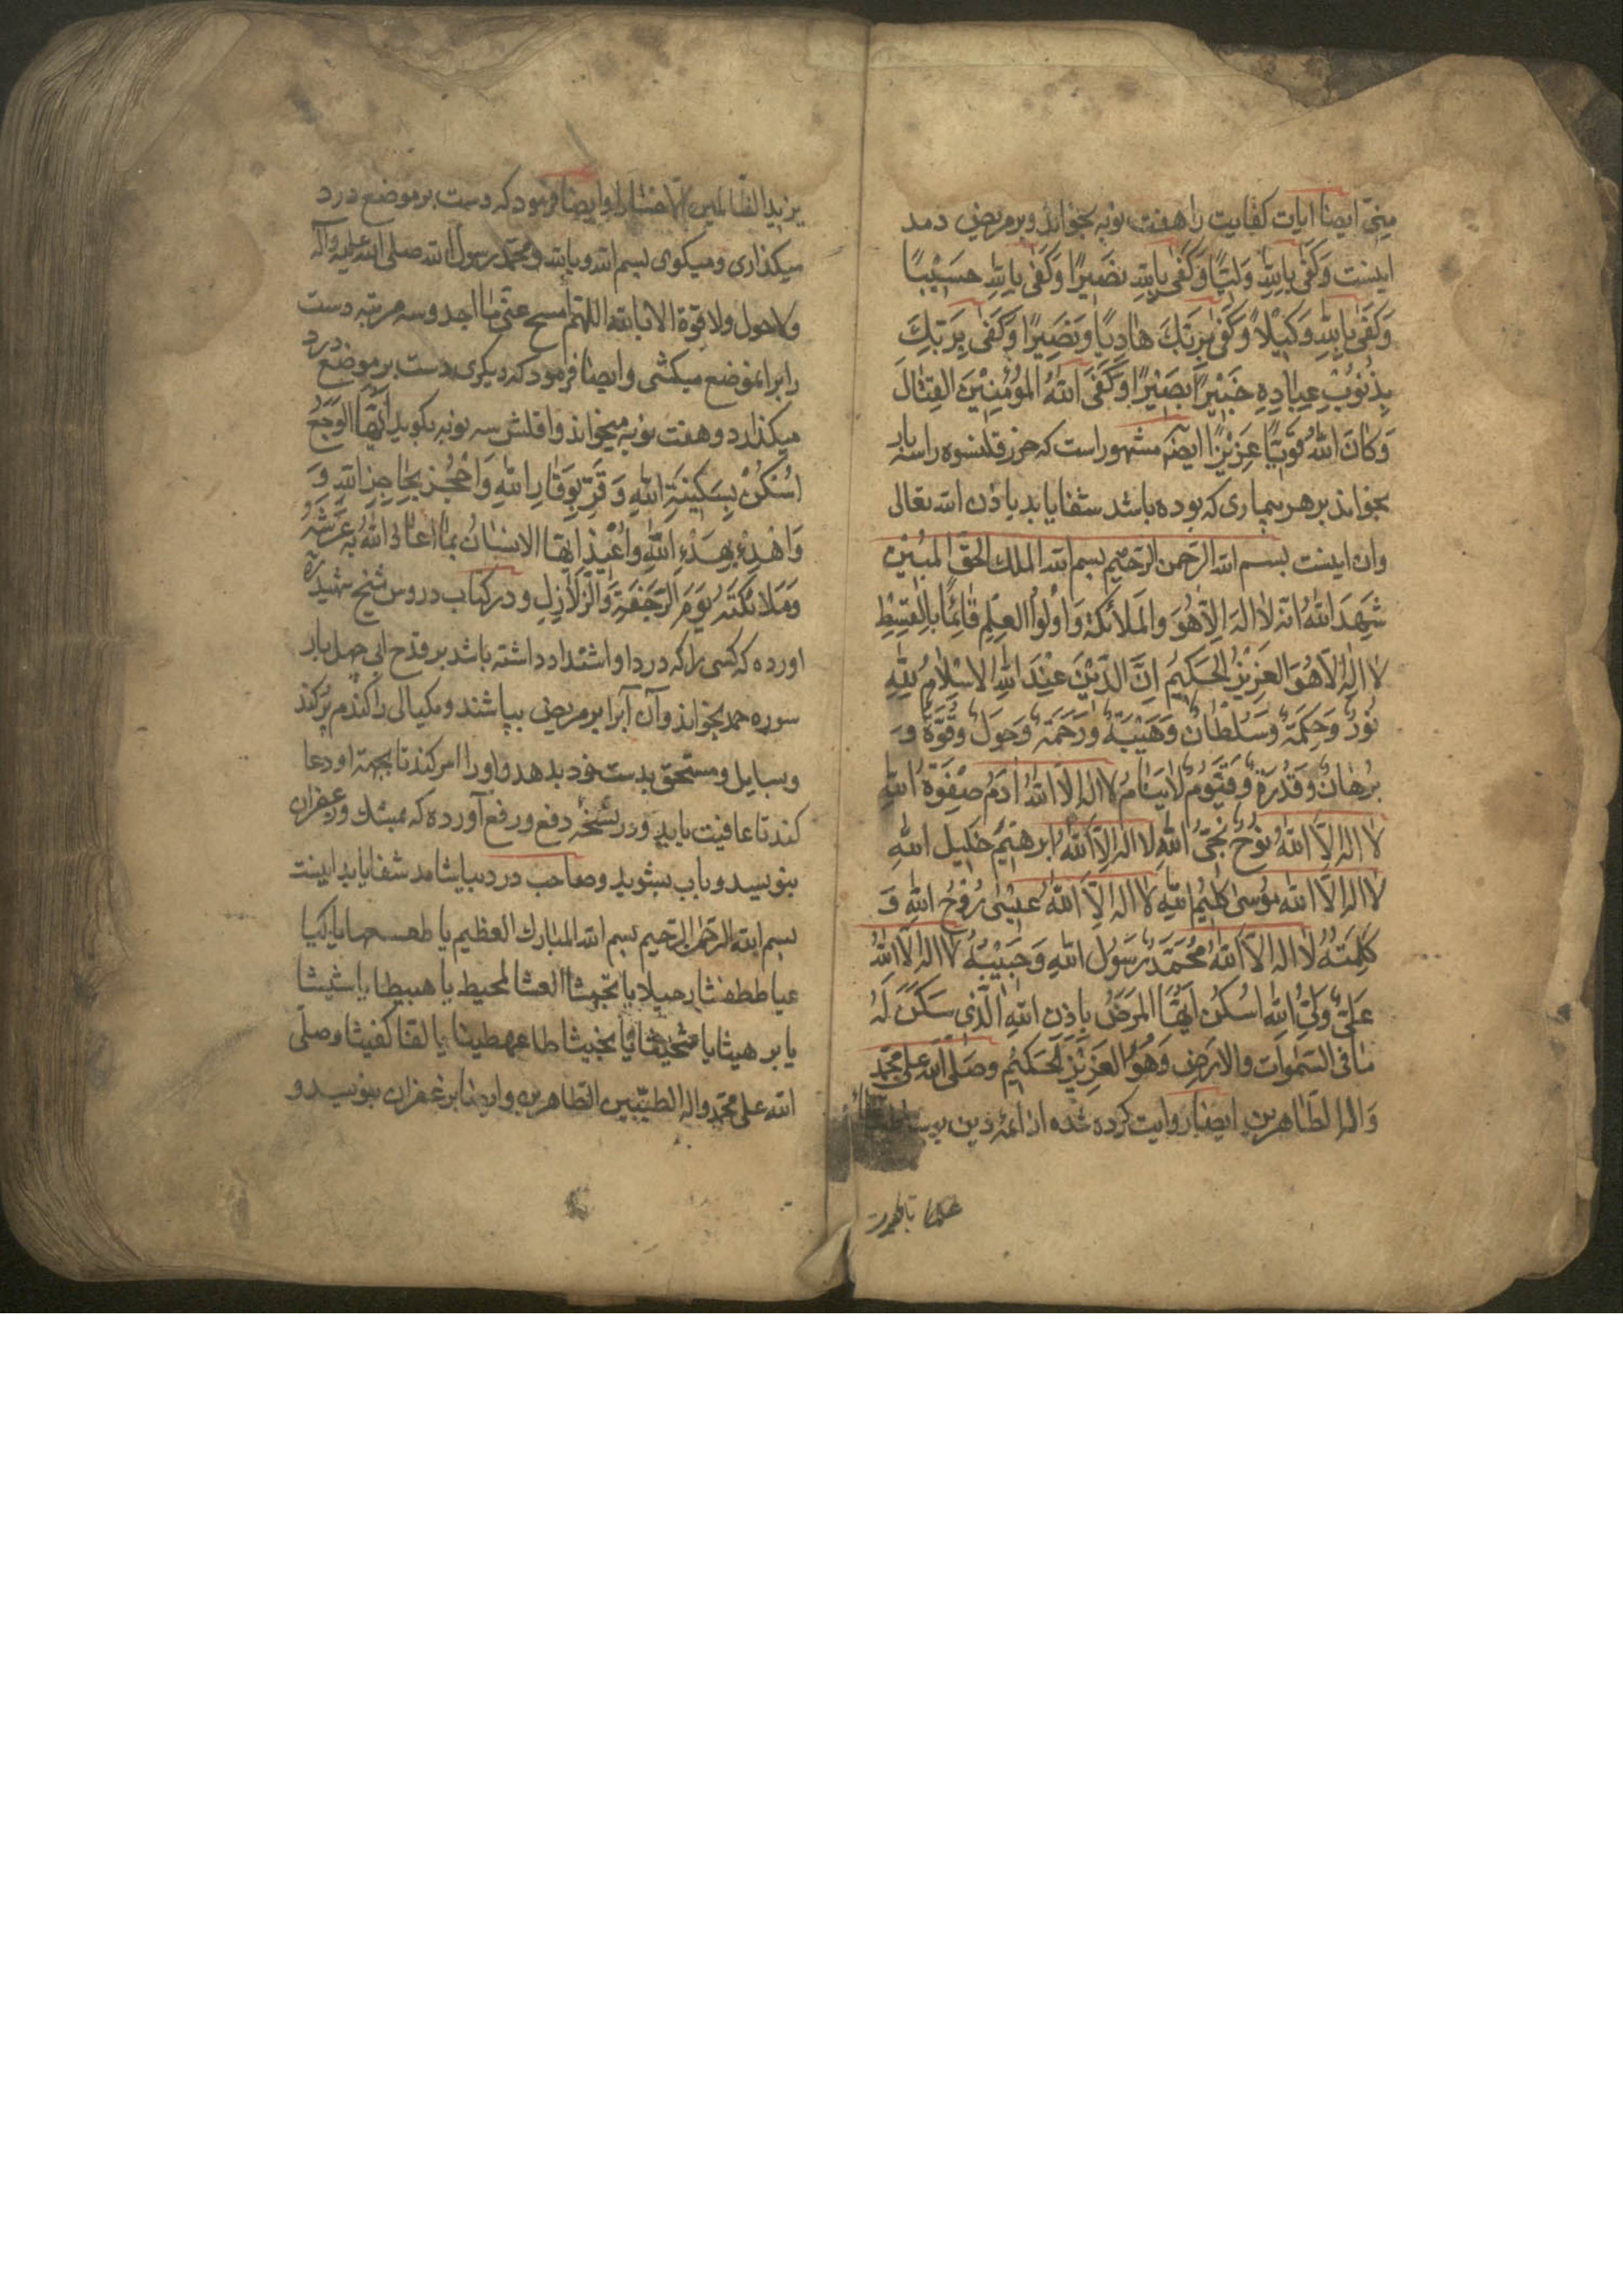 مینجّ ایضا ایات کفایت را هفت نوبه بخواند و بر مریض دمد
اینست وَکَفٰی بِاللّٰهِ وَلیًّا وَکَفٰی بِاللّٰهِ نَصِیرًا وَکَفٰی بِاللّٰهِ حَسِیْبًا
وَکَفٰی بِاللّٰهِ وَکِیْلًا وَکَفٰی بِرَبِّكَ هَادِیًا وَنَصِیرًا وَکَفٰی بِرَبِّكَ
بِذُنُوبِ عِبَادِهِ خَبِیْرًا بَصِیْرًا وَکَفَی اللّٰهُ الْمُؤْمِنِیْنَ القِتٰالَ
وَکٰانَ اللّٰهُ قَوِیًّا عَزِیْزًا ایضًا مشهور است که حرز قلنسوه را سه بار
بخواند بر هر بیماری که بوده باشد شفا یابد باذن الله تعالی
وان اینست بسم الله الرّحمن الرّحیم بسم الله الملك الحقّ المبُیْن
شَهِدَ اللّٰهُ انّه لا اله الّا هُوَ والمَلائکة وَاُولُوا العِلْمِ قَائِمًا بِالْقِسْطِ
لا اله الّا هُوَ العَزِیْزُ الحَکِیمُ اِنَّ الدِّیْنَ عِنْدَ اللّٰهِ الاِسْلٰامُ لِلّٰهِ
نُورٌ وَحِکْمَةٌ وَسُلْطَانٌ وَهَیْبَةٌ وَرَحْمَةٌ وَحَولٌ وَقُوَّةٌ وَ
بُرْهٰانٌ وَقُدْرَةٌ وَقَیُّومٌ لاٰیَنٰامُ لا اله الّا اللّٰهُ اٰدَمُ صِفْوَةُ اللّٰهِ
لا اله الّا اللّٰهُ نُوحٌ نَجِیُّ اللّٰهِ لا اله الّا اللّٰهُ ابرهیمُ خَلِیل اللّٰهِ
لا اله الّا اللّٰه مُوسٰی کلِیمُ اللّٰهِ لا اله الّا اللّٰهُ عِیْسٰی رُوْحُ اللّٰهِ وَ
کَلِمَتُهُ لا اله الّا اللّٰهُ مُحَمَّدٌ رَسُولُ اللّٰهِ وَحَبِیْبُهُ لا اله الّا اللّٰهُ
عَلِیٌّ وَلِیُّ اللّٰهِ اسْکُن ایّهَا المَرَضُ بِاِذنِ اللّٰهِ الَّذِی سَکَنَ لَهُ
مَا فی السّمٰوات والارَضِ وَهُوَ العَزِیْزُ الحَکِیْم وصَلّی الله علی محمّد
وَاله الطّاهرین ایضا روایت کرده شده از ائمه دین
یزید الظّالمین الّا خسٰارا وایضا فرمود که دست بر موضع درد
میکذاری ومیکوی بسم الله وبالله ومحمّد رسول الله صلی الله علیه واله
ولا حول ولا قوة الا بالله اللهّم امسح عنّی ما اجد وسه مرتبه دست
را بر انموضع میکشی وایضا فرمود که دیکری دست بر موضع درد
میکذارد وهفت نوبه میخواند واقلش سه نوبه بکوید ایّها الوَجَعُ
اسْکُنْ بِسَکِینَةِ اللّٰهِ وَقَرِّ بِوَقَارِ اللّٰهِ وَاحْجُز بِحَاجِزِ اللّٰهِ وَ
وَاهْدِءْ بِهَدْءِ اللّٰهِ واُعِیْذُ ایّها الانسٰانُ بمٰا اعاذ اللّٰهُ بِه عَرْشَهُ
وَمَلائکتَه یَوْمَ الرّجْفَةِ وَالزَّلازِلِ ودر کتاب دروس شیخ شهید ره
اورده که کسی را که درد او اشتداد داشته باشد بر قدح ابی چهل بار
سوره حمد بخواند وآن آب را بر مریض بپاشند ومکیالی را کندم پر کند
وبسایل ومستحق بدست خود بدهد واو را امر کند تا بجهة او دعا
کند تا عافیت یابد ودر نسخه دفع ورفع آورده که بمشك وزعفران
بنویسد وباب بشوید وصاحب درد بیاشامد شفا یابد اینست
بسم الله الرّحمٰن الرّحیم بسم الله المبارك العظیم یا
الله علی محمّد واله الطیّبین الطاهرین وایضا بزعفران بنویسد و